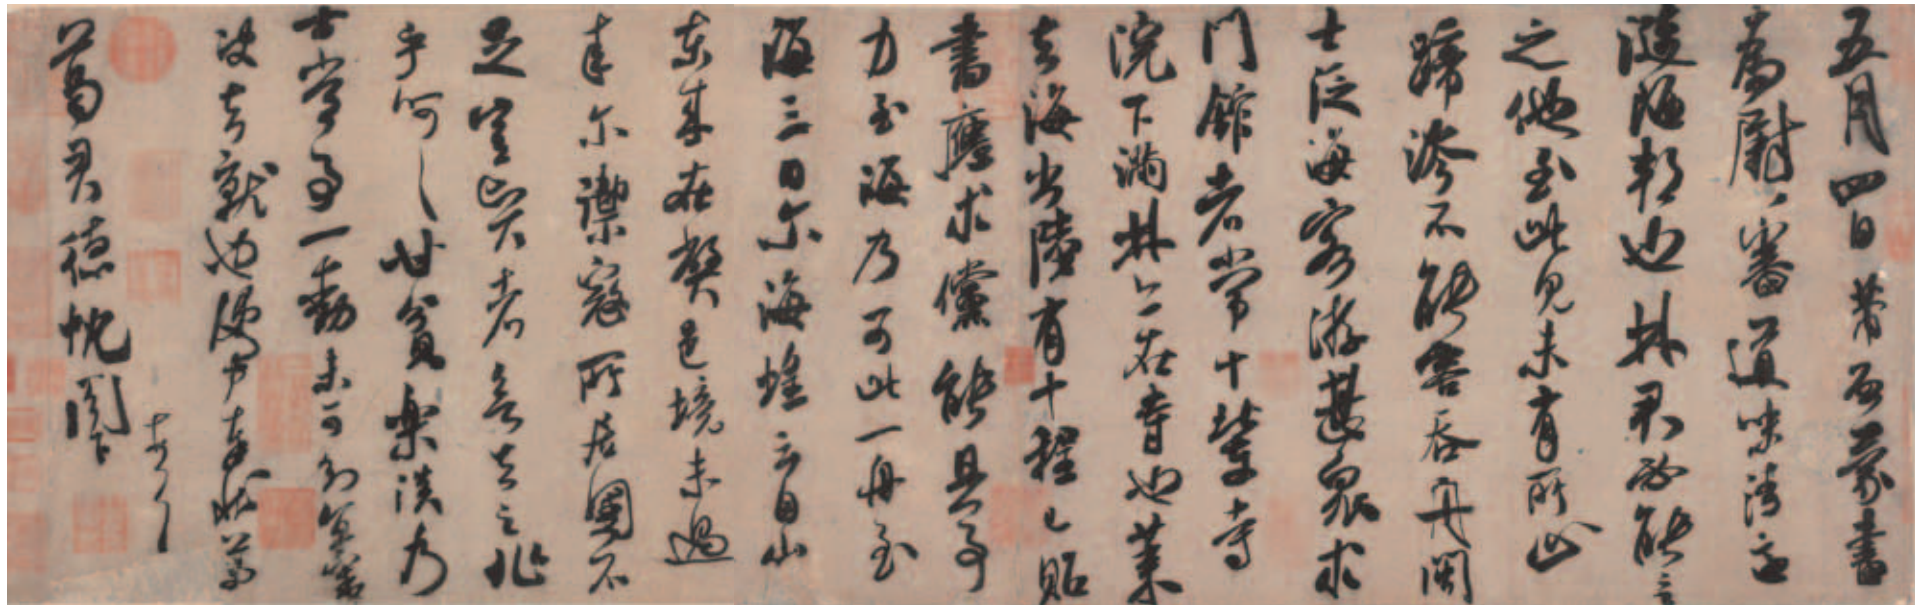 五月四日芾啓蒙書
為尉審道味清適
漣陋邦也林君必能言
之他至此見未有所止
蹄涔不能容吞舟閩
士泛海客游甚衆求
門館者常十輩寺
院下滿林亦在寺也萊
去海出陸有十程已貼
書應求儻能具事
力至海乃可此一舟至
海三日尔海蝗云自山
東來在弊邑境未過
來尔禦寇所居國不
足豈賢者欲去之兆
乎呵呵甘貧樂淡乃
士常事一動未可知宜審
決去就也便中奉狀芾
頓首
葛君德忱閣下